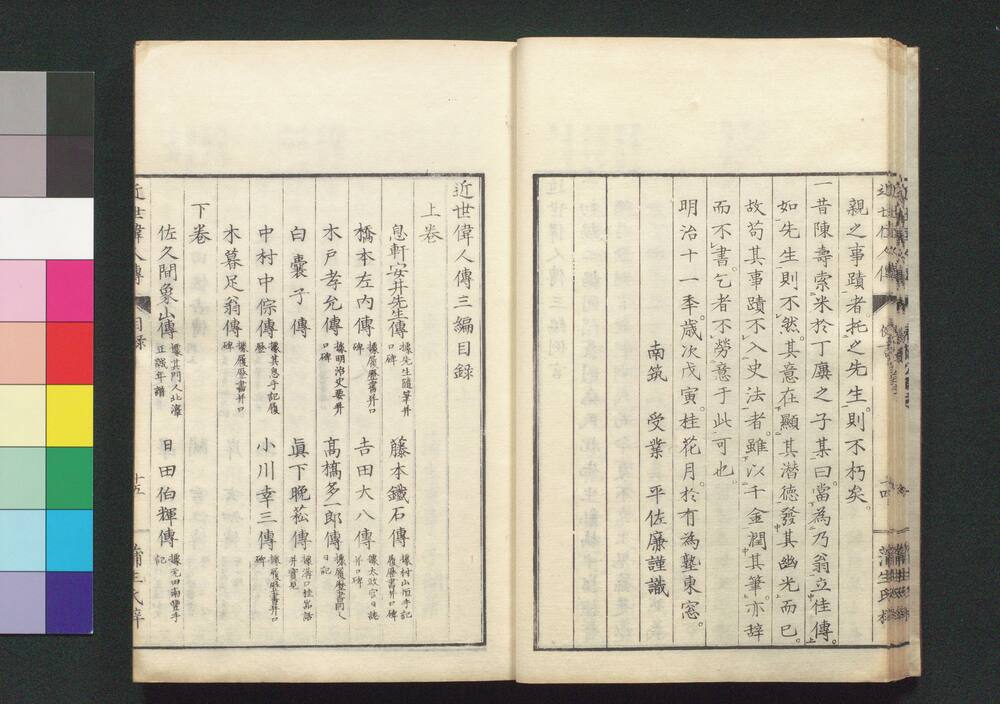 親之事蹟者托之先生則不朽矣。
一昔陳壽索米於丁廙之子某曰當為乃翁立佳傳。
如先生則不然。其意在顯其潜德發其幽光而已。
故苟其事蹟不入史法者。雖以千金潤其筆亦辞
而不書。乞者不勞意于此可也。
明治十一季。歳次戊寅。桂花月。於有為塾東窓。
南筑 受業 平佐廉謹識
近世偉人傳三編目録
上卷
息軒安井先生傳 據先生隨筆并口碑
藤本鐵石傳 據村山恒手記履歴書并口碑
橋本左内傳 據履歴書并口碑
吉田大八傳 據太政官日誌并口碑
木戸孝允傳 據明治史要并口碑
髙橋多一郎傳 據履歴書同人日記
白囊子傳
眞下晩菘傳
中村中倧傳 據其息手記履歴
小川幸三傳 據履歴書并口碑
木暮足翁傳 據履歴書并口碑
下卷
佐久間象山傳 據其門人北澤正誠年譜
日田伯輝傳
近世偉人傳 目録 十五 蒲生氏梓